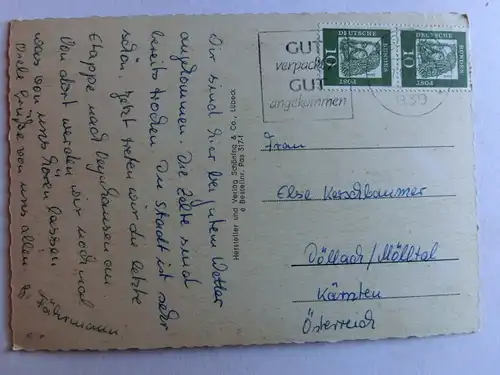 Wir sind hier bei gutem Wetter
angekommen. Die Zelte sind
bereits trocken. Die Stadt ist sehr
schön. Jetzt treten wir die letzte
Etappe nach Oeynhausen an.
Von dort werden wir noch mal
was von uns hören lassen
Viele Grüße von uns allen
Hersteller und Verlag Schöning & Co., Lübeck
Bestellnr. Pas 5121
GUT
verpackt
GUT
angekommen
DEUTSCHE
BUNDESPOST
10
DEUTSCHE
BUNDESPOST
10
Frau
Else Kerschbaumer
Döllach/Mölltal
Kärnten
Österreich